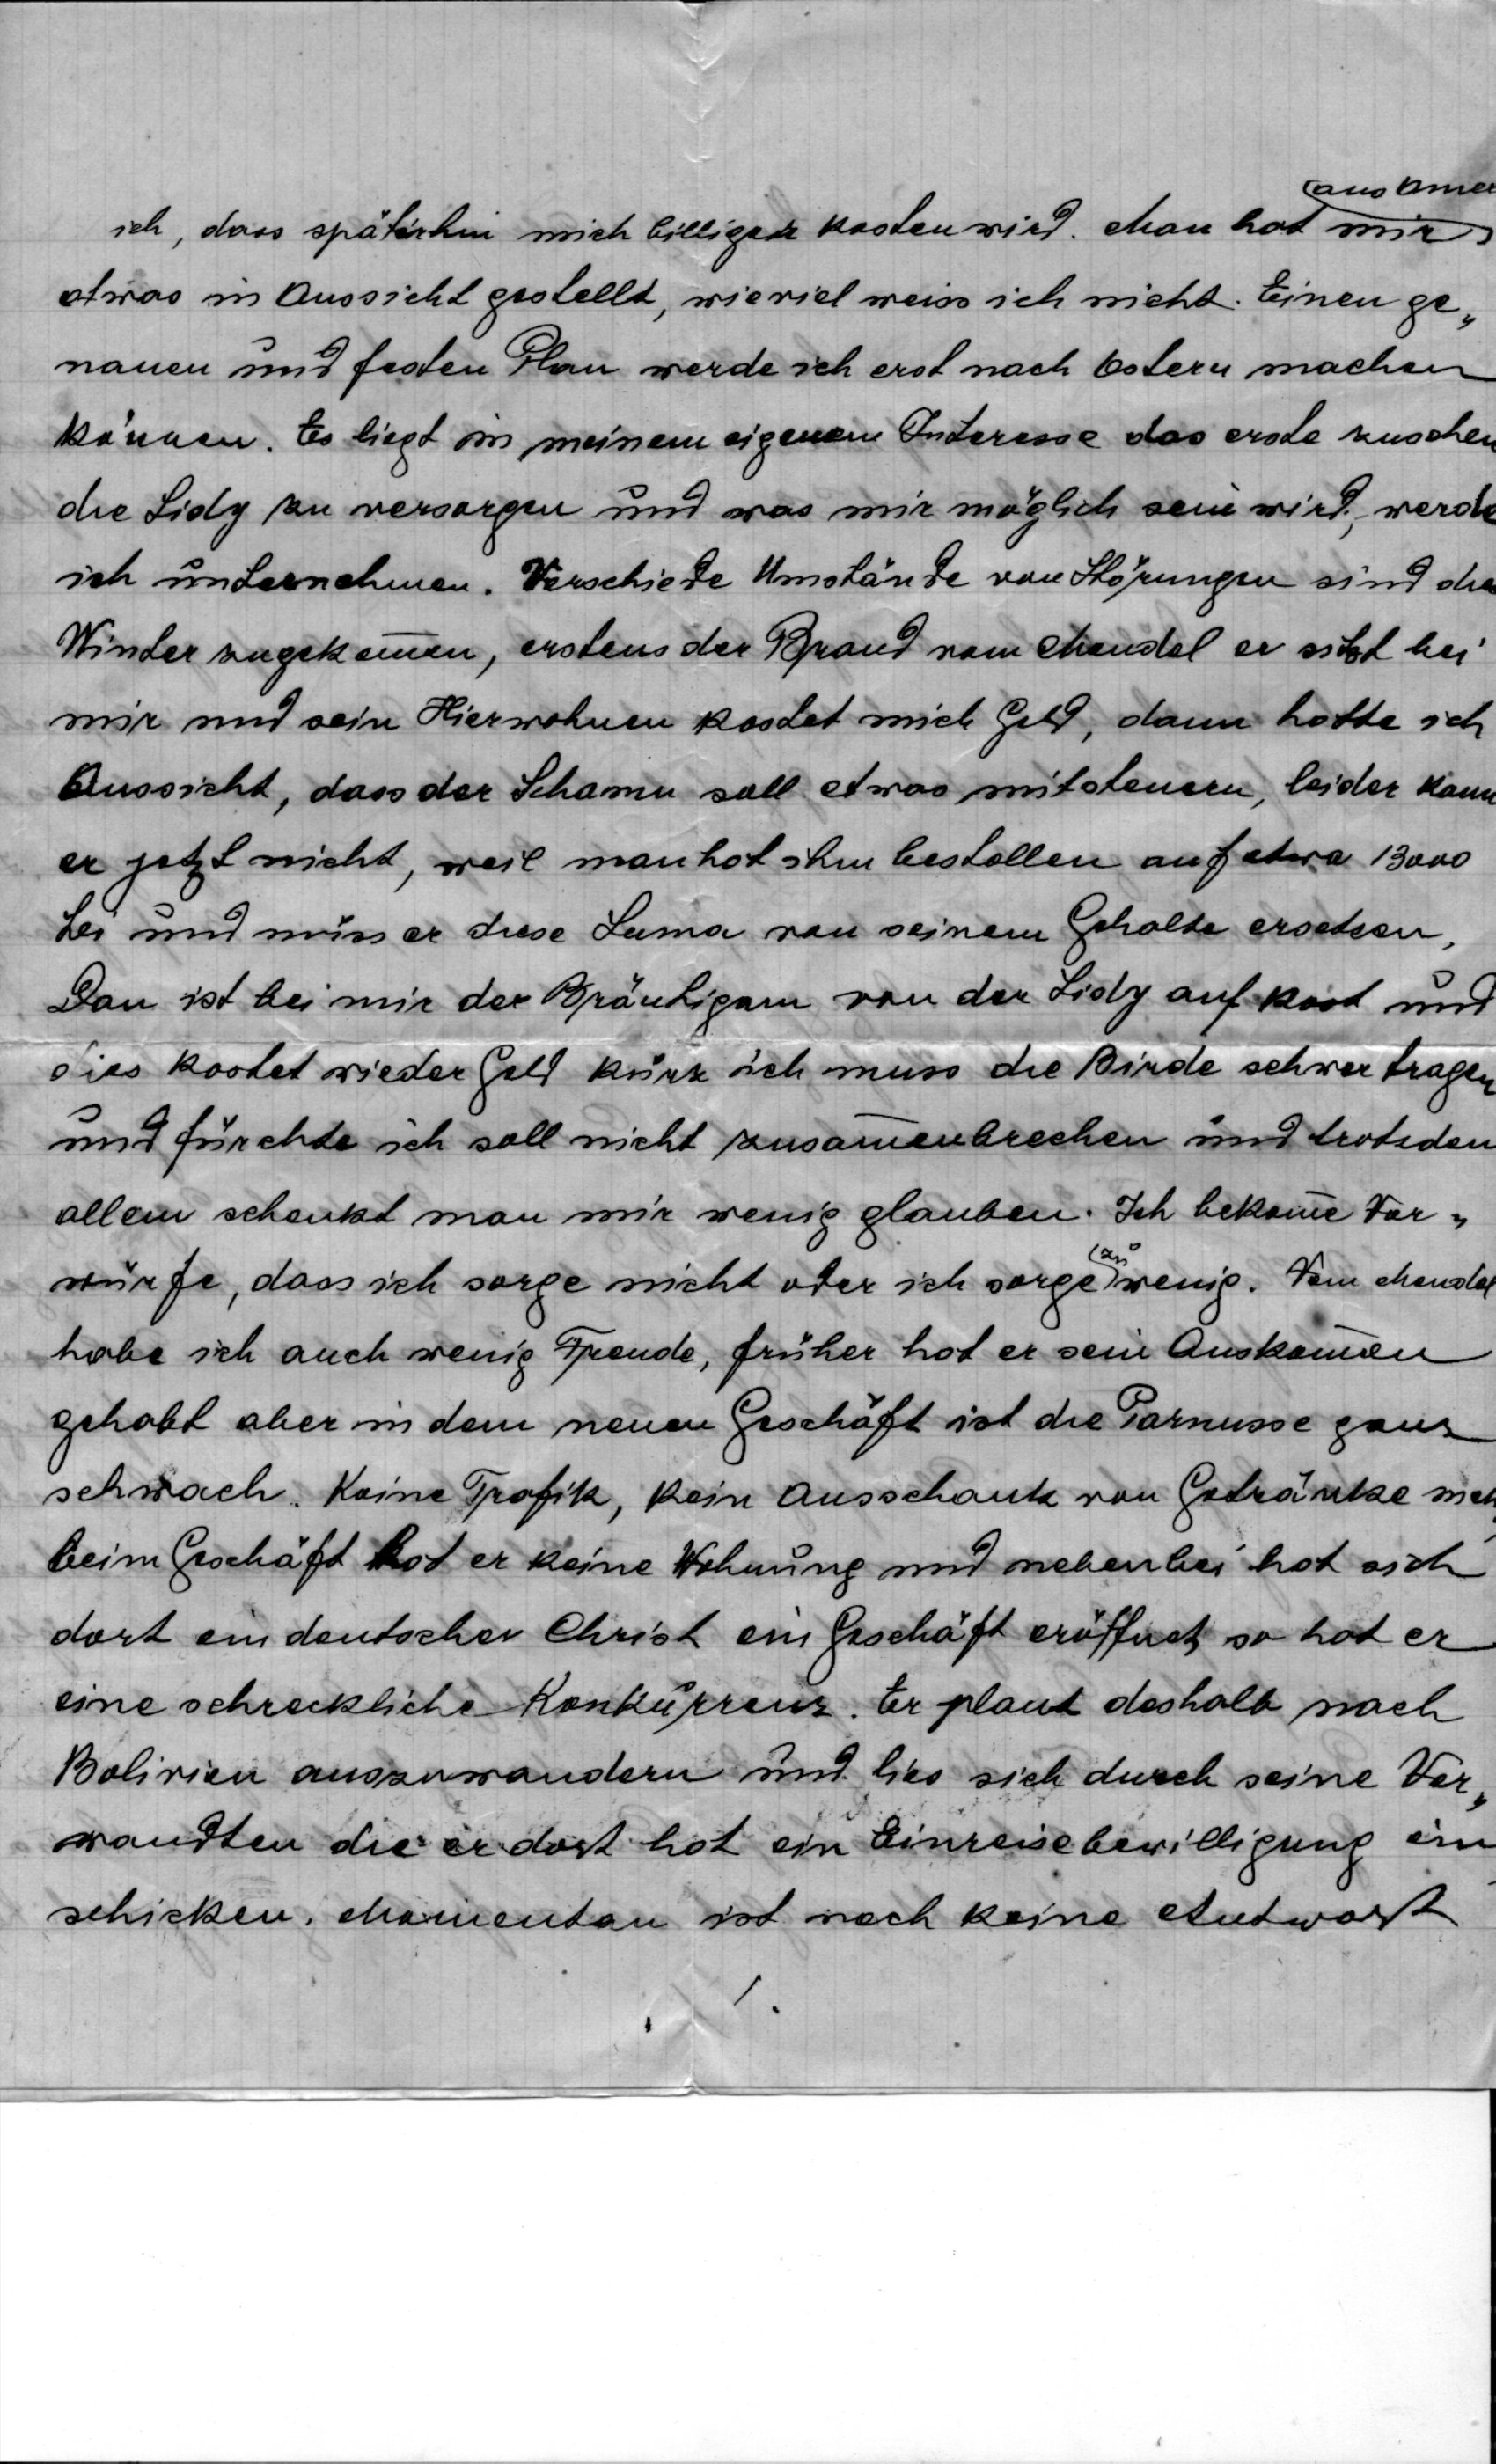 (aus Amer
ich, dass späterhin mich billiger kosten wird. Man hat mir
etwas in Aussicht gestellt, wieviel weiss ich nicht. Einen ge„
nauen und festen Plan werde ich erst nach Ostern machen
können. Es liegt im meinem eigenem Interesse das erste zusehen
die Sidy zu versorgen und was mir möglich sein wird, werde
ich unternehmen. Verschiede Umstände von Störungen sind die
Winter zugekom̅en, erstens der Brand vom Mendel er sitzt bei
mir und sein Hierwohnen kostet mich Geld, dann hatte ich
Aussicht, dass der Schamu soll etwas mitsteuern, leider kann
er jetzt nicht, weil man hat ihm bestollen auf etwa 13000
Lei und muss er diese Suma von seinem Gehalte ersetsen,
Dan ist bei mir der Bräutigam von der Sidy auf Kost und
dies kostet wieder Geld kurz ich muss die Birde schwer tragen
und fürchte ich soll nicht zusam̅enbrechen und trotsden
allem schenkt man mir wenig glauben. Ich bekom̅e Vor„
würfe, dass ich sorge nicht oder ich sorge (zu wenig. Vom Mendel
habe ich auch wenig Freude, früher hat er sein Auskom̅en
gehabt aber in dem neuen Geschäft ist die Parnusse ganz
schwach. Keine Trafik, kein Ausschank von Getränke
beim Geschäft hat er keine Wohnung und nebenbei hat sich
dort ein deutscher Christ ein Geschäft eröffnet, so hat er
eine schreckliche Konkurrenz. Er plant deshalb nach
Bolivien auszuwandern und lies sich durch seine Ver„
wandten die er dort hat ein Einreisebewilligung ein
schicken. Momentan ist noch keine Antwort
/.